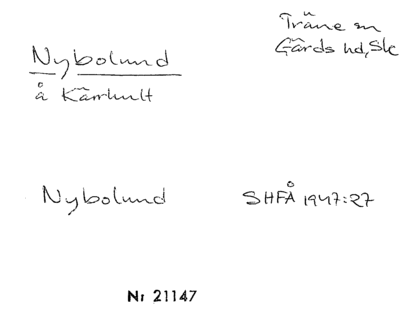 Träne sn
Gärds hd, Sk
Nybolund
å Kärrhult
Nybolund SHFÅ 1947:27
Nr 21147